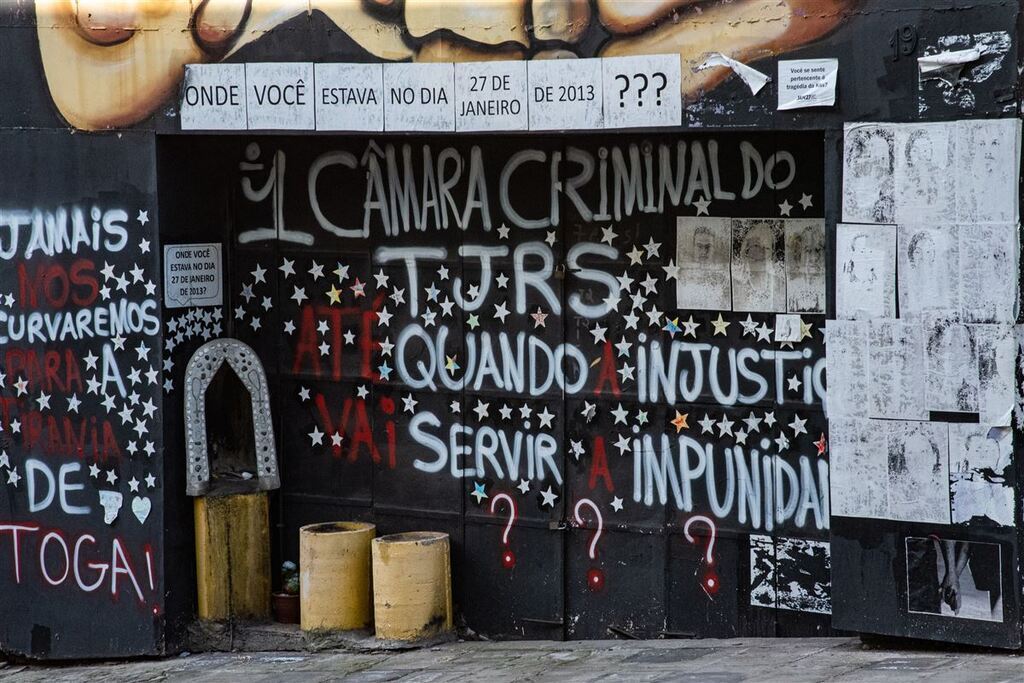 19
ONDE VOCÊ ESTAVA NO DIA 27 DE JANEIRO DE 2013 ???
Você se sente
pertencente à
tragédia da Kiss?
JAMAIS
NOS
CURVAREMOS
PARA A
TIRANIA
DE
TOGA!
ONDE VOCÊ
ESTAVA NO DIA
27 DE JANEIRO
DE 2013?
1 CÂMARA CRIMINAL DO
TJRS
ATÉ QUANDO A INJUSTIÇ
VAI SERVIR A IMPUNIDA
? ? ?